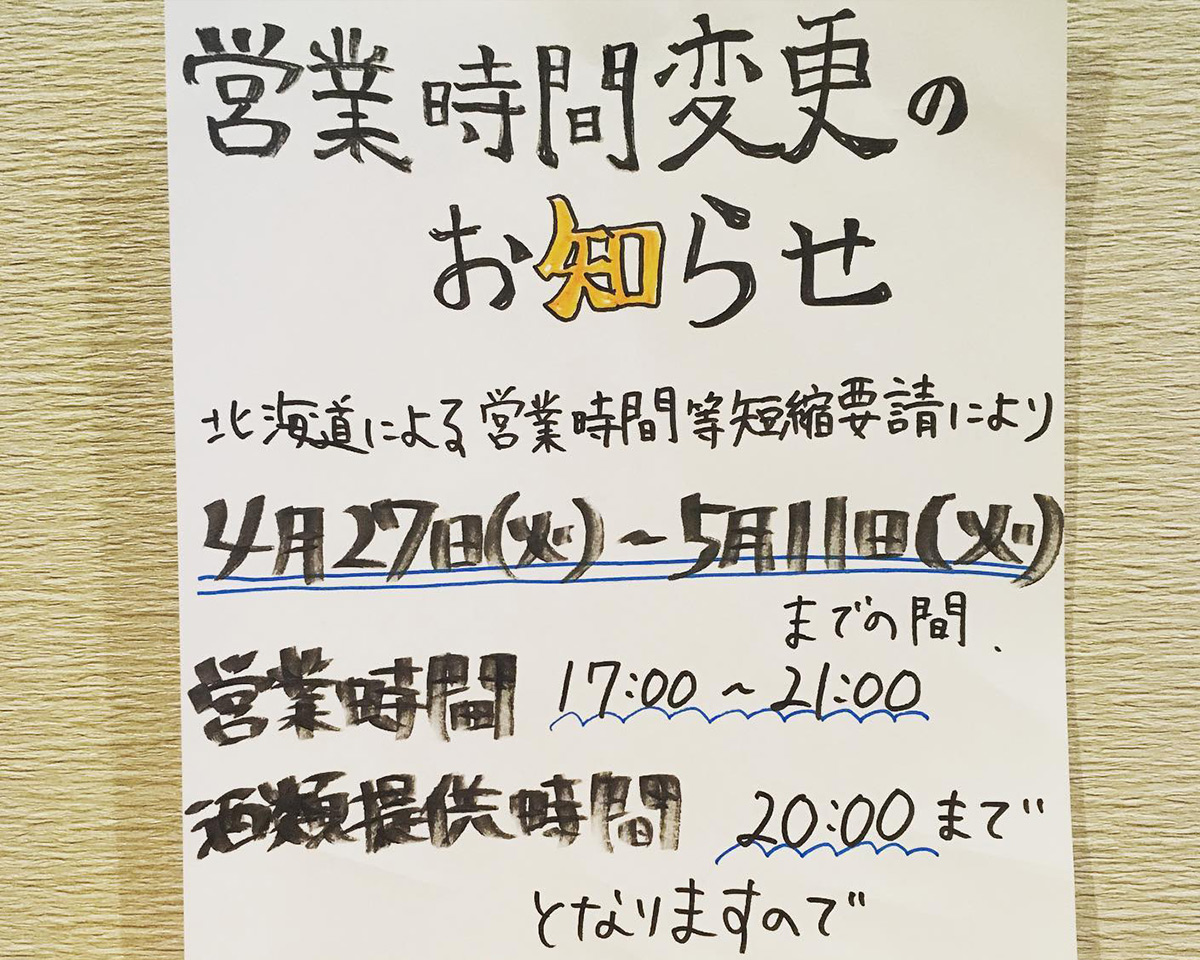 営業時間変更の
お知らせ
北海道による営業時間等短縮要請により
4月27日(火)~5月11日(火)
までの間、
営業時間 17:00~21:00
酒類提供時間 20:00まで
となりますので